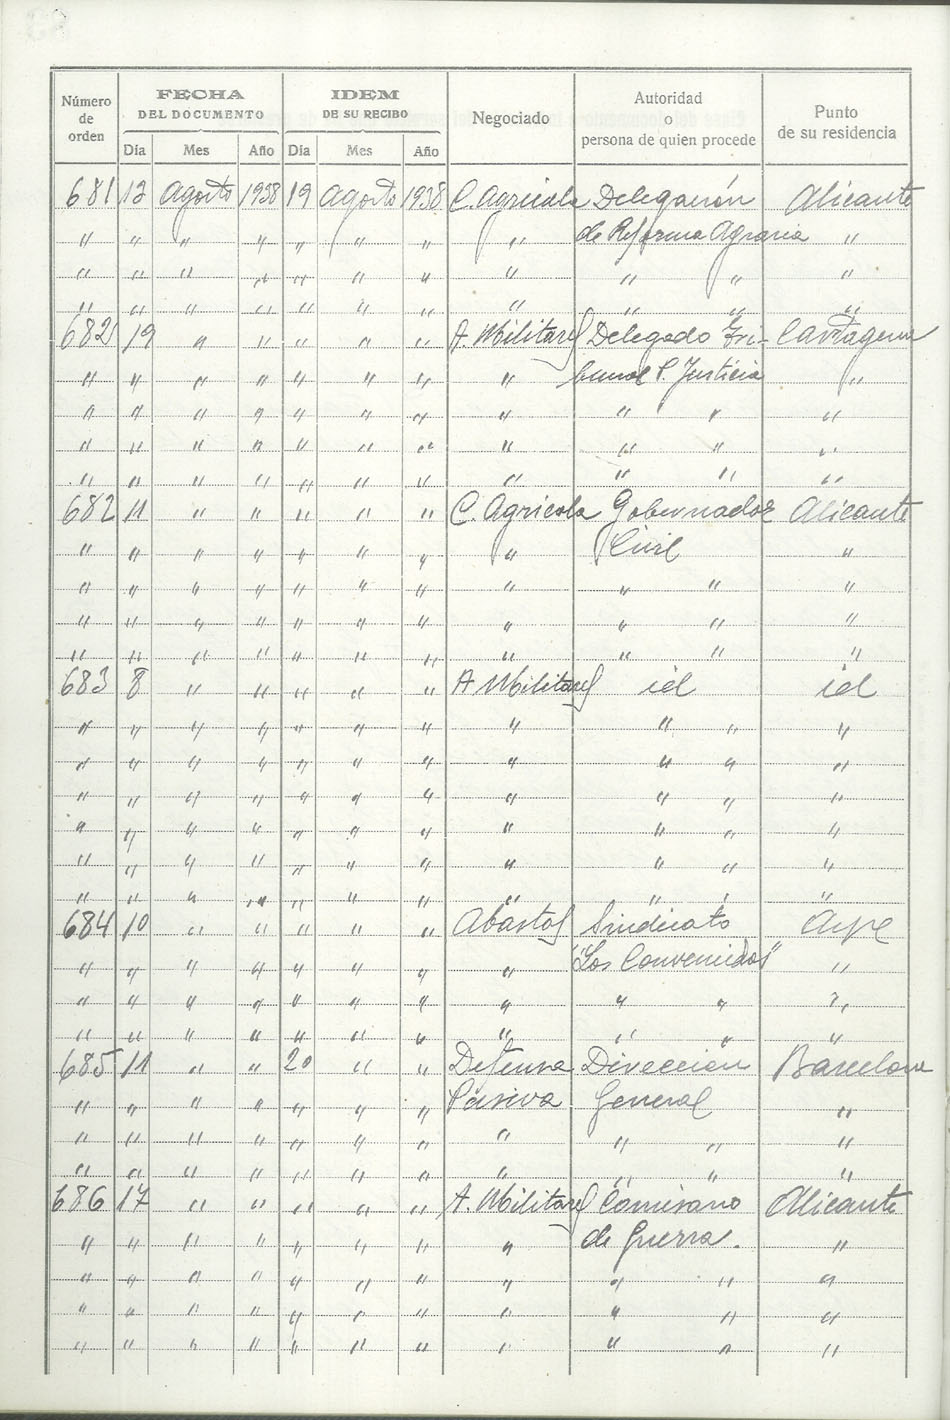 Número de orden | FECHA DEL DOCUMENTO | IDEM DE SU RECIBO | Negociado | Autoridad o persona de quien procede | Punto de su residencia
Día | Mes | Año | Día | Mes | Año
681 12 Agosto 1938 19 Agosto 1938 C. Agrícola Delegación Alicante
" " " " " " " " de Reforma Agraria "
" " " " " " " " " " "
" " " " " " " " " " "
682 19 " " " " " A. Militares Delegado Tri- Cartagena
" " " " " " " " bunal P. Justicia "
" " " " " " " " " " "
" " " " " " " " " " "
" " " " " " " " " " "
682 11 " " " " " C. Agrícola Gobernador Alicante
" " " " " " " " Civil "
" " " " " " " " " " "
" " " " " " " " " " "
" " " " " " " " " " "
683 8 " " " " " A Militares id id
" " " " " " " " " " "
" " " " " " " " " " "
" " " " " " " " " " "
" " " " " " " " " " "
" " " " " " " " " " "
" " " " " " " " " " "
684 10 " " " " " Abastos Sindicato Aspe
" " " " " " " " "Los Convenidos" "
" " " " " " " " " " "
" " " " " " " " " " "
685 11 " " 20 " " Defensa Dirección Barcelona
" " " " " " " Pasiva General "
" " " " " " " " " " "
" " " " " " " " " " "
686 17 " " " " " A. Militares Comisario Alicante
" " " " " " " " de Guerra. "
" " " " " " " " " " "
" " " " " " " " " " "
" " " " " " " " " " "